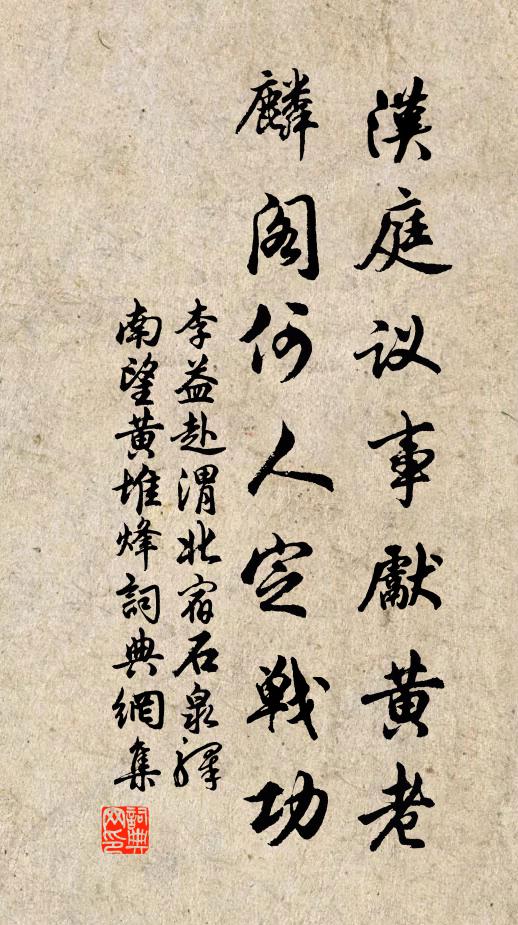 漢庭议事獻黄老
麟阁何人定戦功
李益赴渭北宿石泉驛
南望黄堆烽詞典網集
詞典
网印